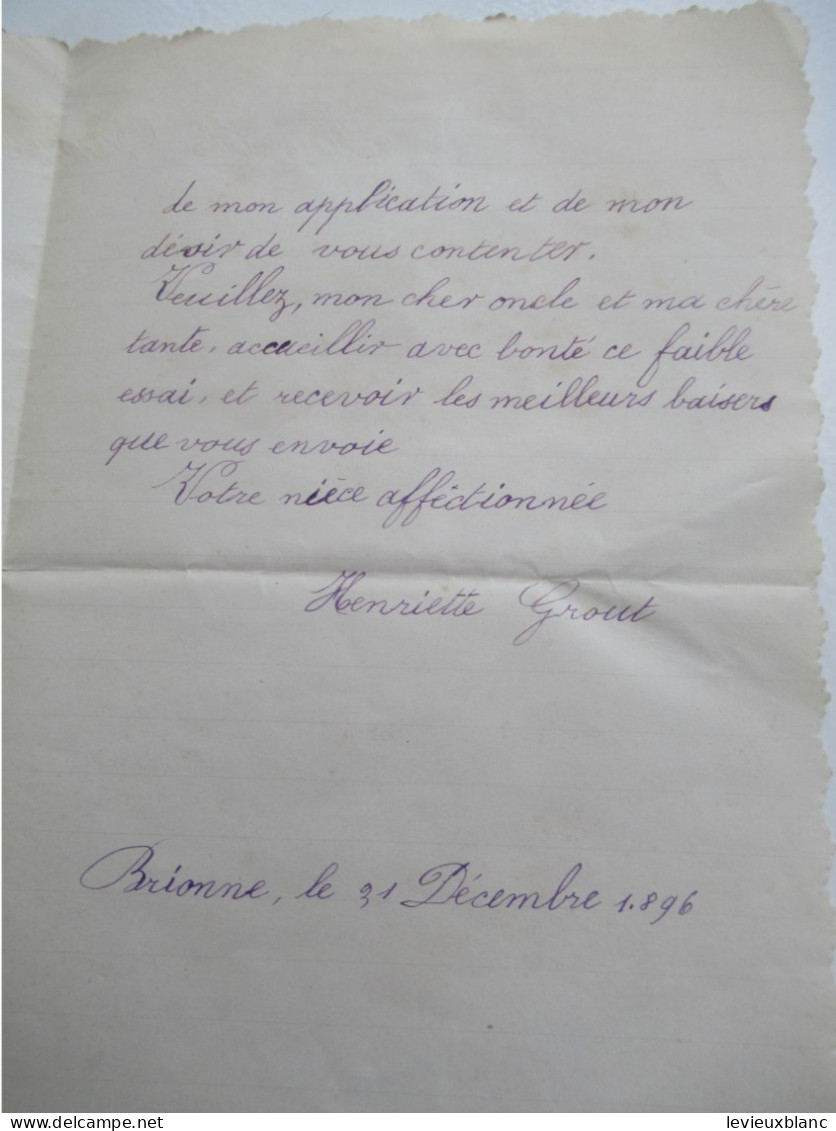 de mon application et de mon
désir de vous contenter.
Veuillez, mon cher oncle et ma chère
tante, accueillir avec bonté ce faible
essai, et recevoir les meilleurs baisers
que vous envoie
Votre nièce afféctionnée
Henriette Grout
Brionne, le 31 Décembre 1.896
levieuxblanc